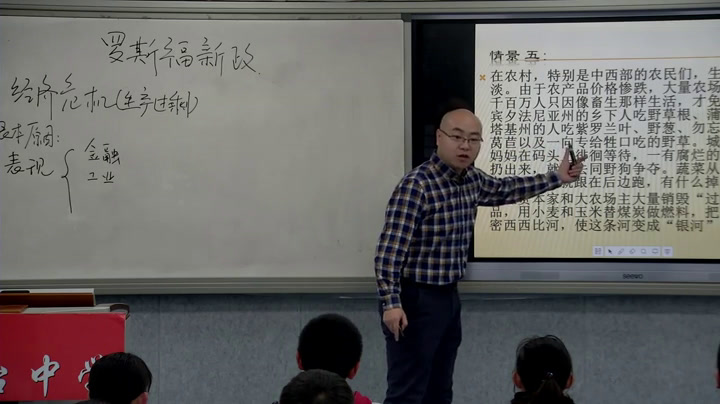 罗斯福新政
经济危机(生产过剩)
本原因:
表现
金融
工业
情景 五:
在农村,特别是中西部的农民们,生
淡。由于农产品价格惨跌,大量农场
千百万人只因像畜生那样生活,才免
宾夕法尼亚州的乡下人吃野草根、蒲
塔基州的人吃紫罗兰叶、野葱、勿忘
莴苣以及一向专给牲口吃的野草。城
妈妈在码头 徘徊等待,一有腐烂的
扔出来,就 同野狗争夺。蔬菜从
就跟在后边跑,有什么掉
资本家和大农场主大量销毁“过
品,用小麦和玉米替煤炭做燃料,把
密西西比河,使这条河变成“银河”
中学